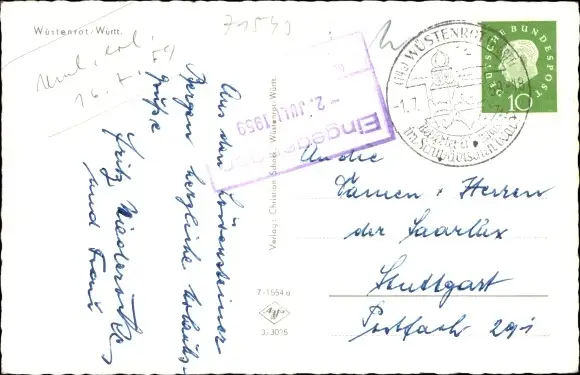 Wüstenrot/Württ.
71543
16. 7.
Aus den Löwensteiner
Bergen herzliche Urlaubs-
grüße
Fritz
und Frau
Verlag: Christian Schock, Wüstenrot/Württ.
7/1554 a
Eingegangen
- 2. JULI 1959
WÜSTENROT
-1.7.
DEUTSCHE BUNDESPOST
10
An die
Damen u. Herren
der Saarlux
Stuttgart
Postfach 291